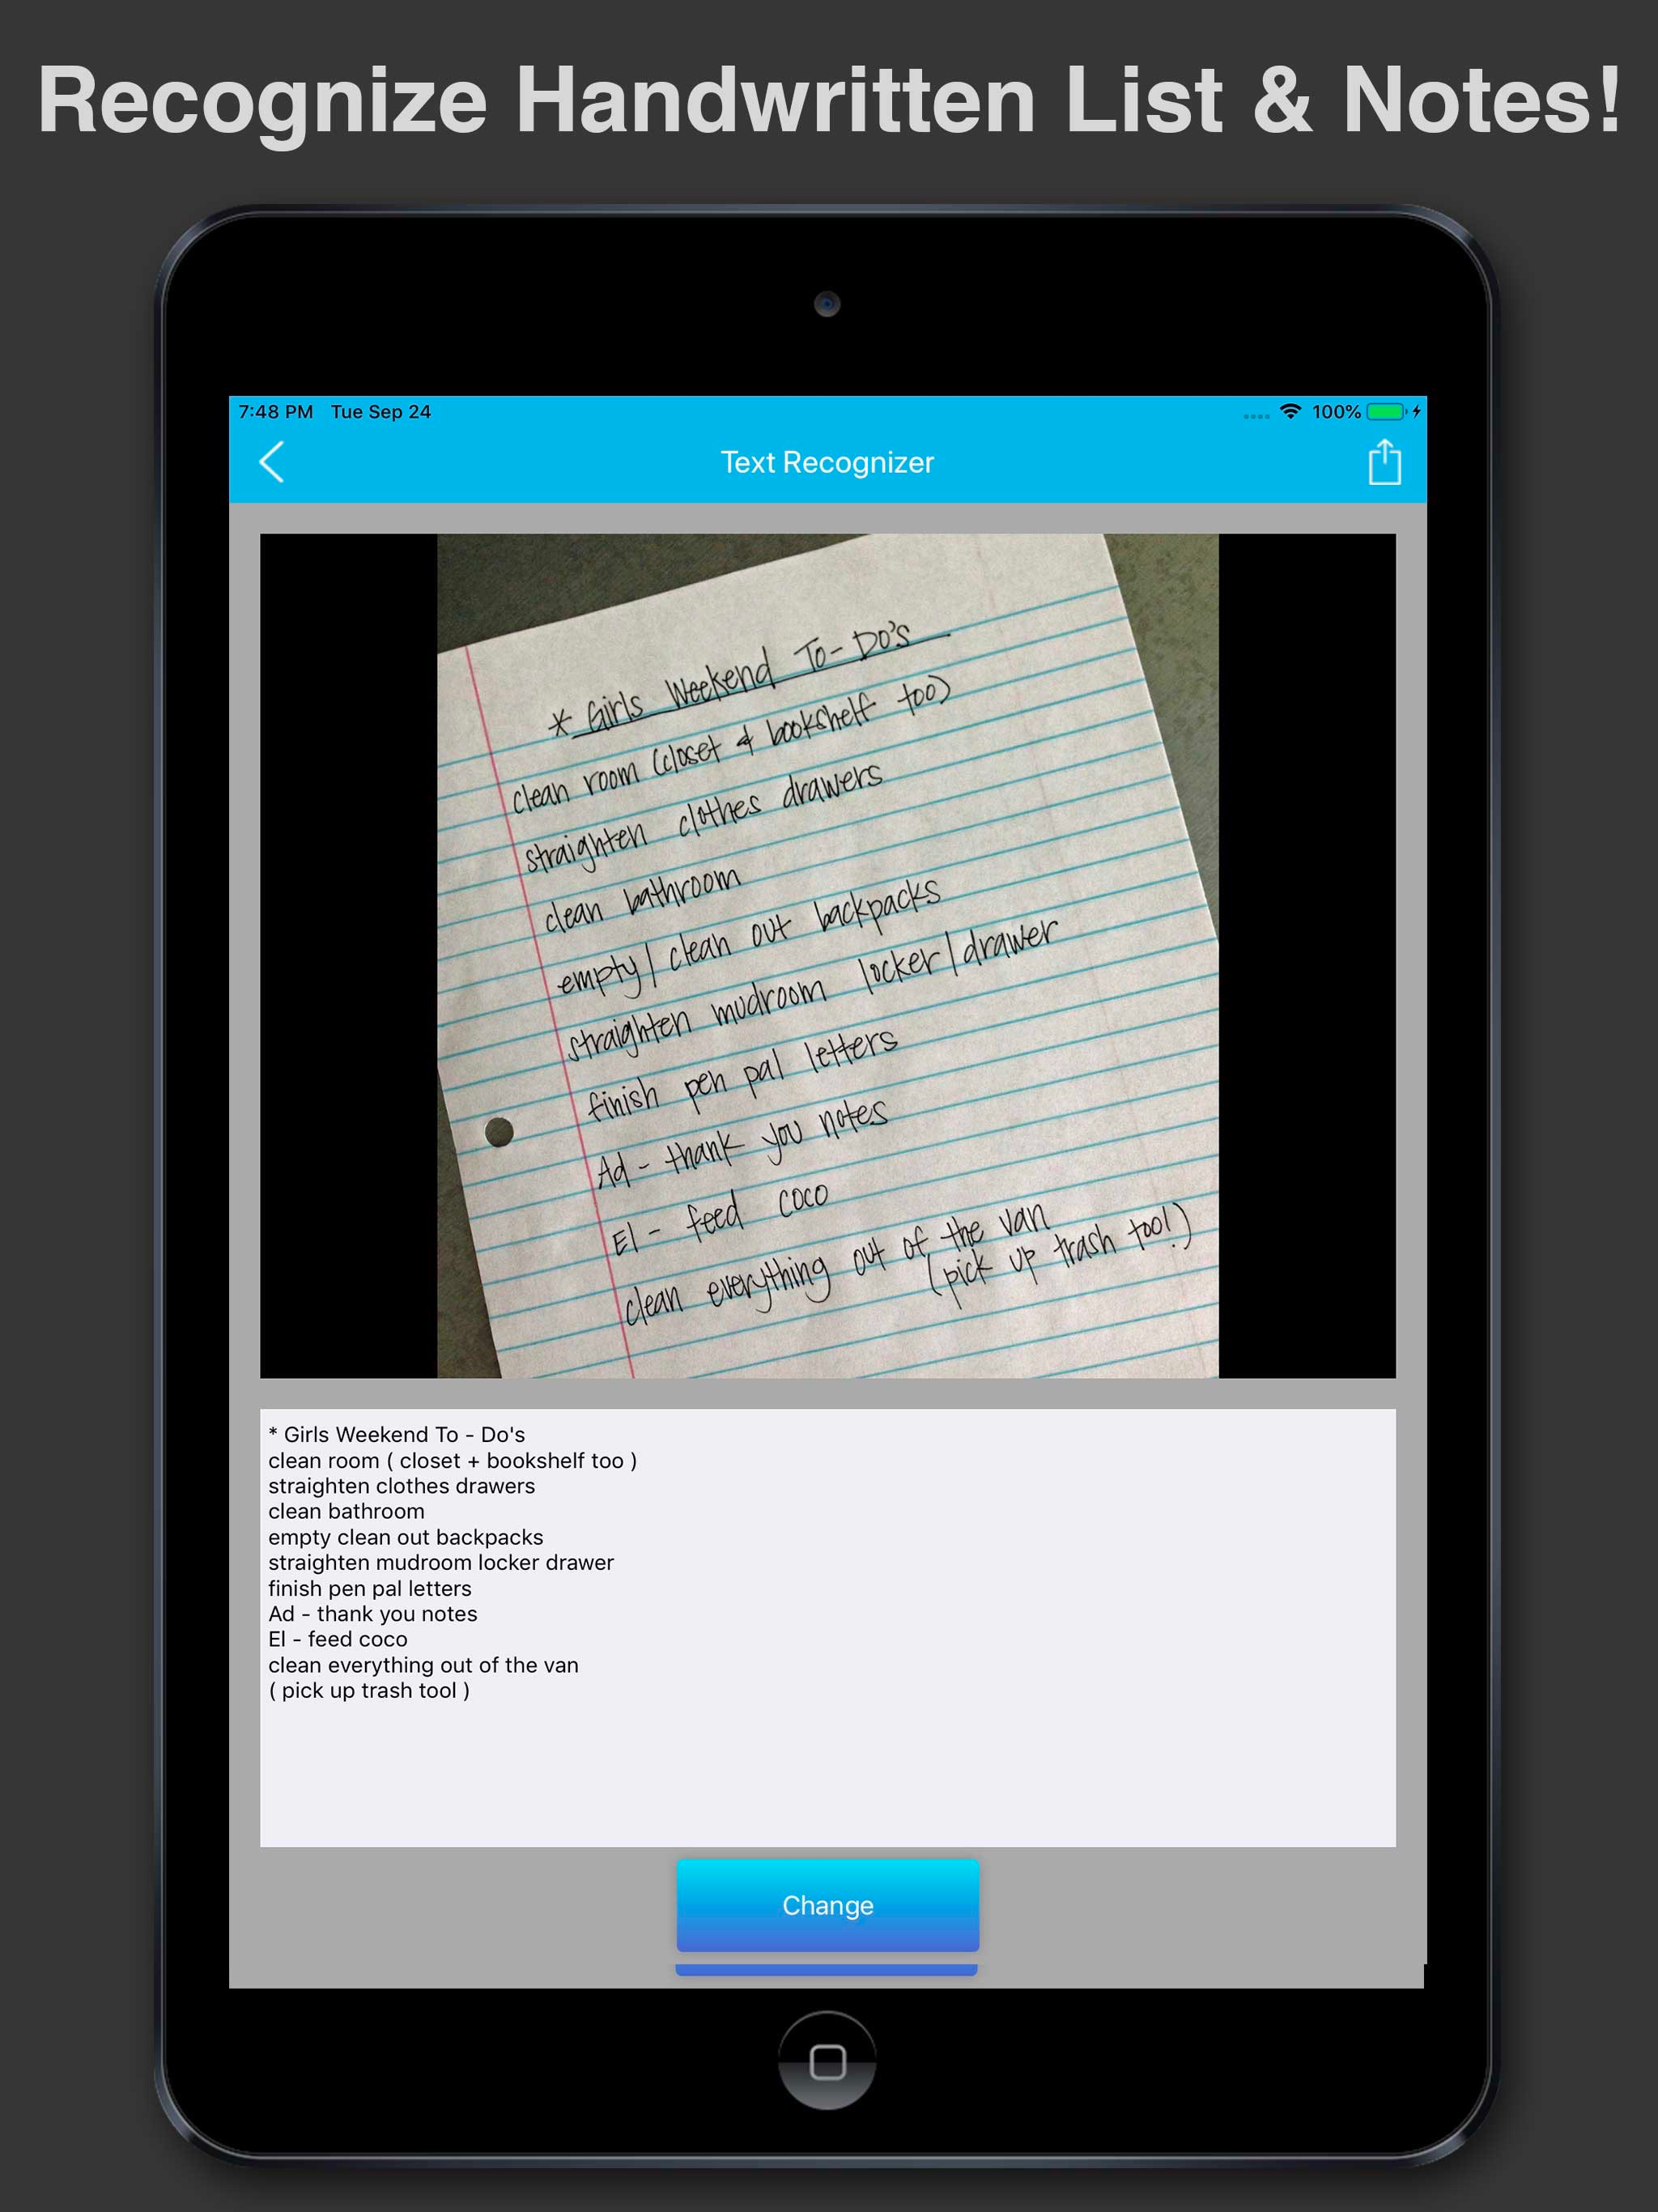 Recognize Handwritten List & Notes!
7:48 PM Tue Sep 24 100%
Text Recognizer
* Girls Weekend To-Do's
clean room (closet & bookshelf too)
straighten clothes drawers
clean bathroom
empty/clean out backpacks
straighten mudroom locker/drawer
finish pen pal letters
Ad - thank you notes
El - feed coco
clean everything out of the van
(pick up trash too!)
* Girls Weekend To - Do's
clean room ( closet + bookshelf too )
straighten clothes drawers
clean bathroom
empty clean out backpacks
straighten mudroom locker drawer
finish pen pal letters
Ad - thank you notes
El - feed coco
clean everything out of the van
( pick up trash tool )
Change